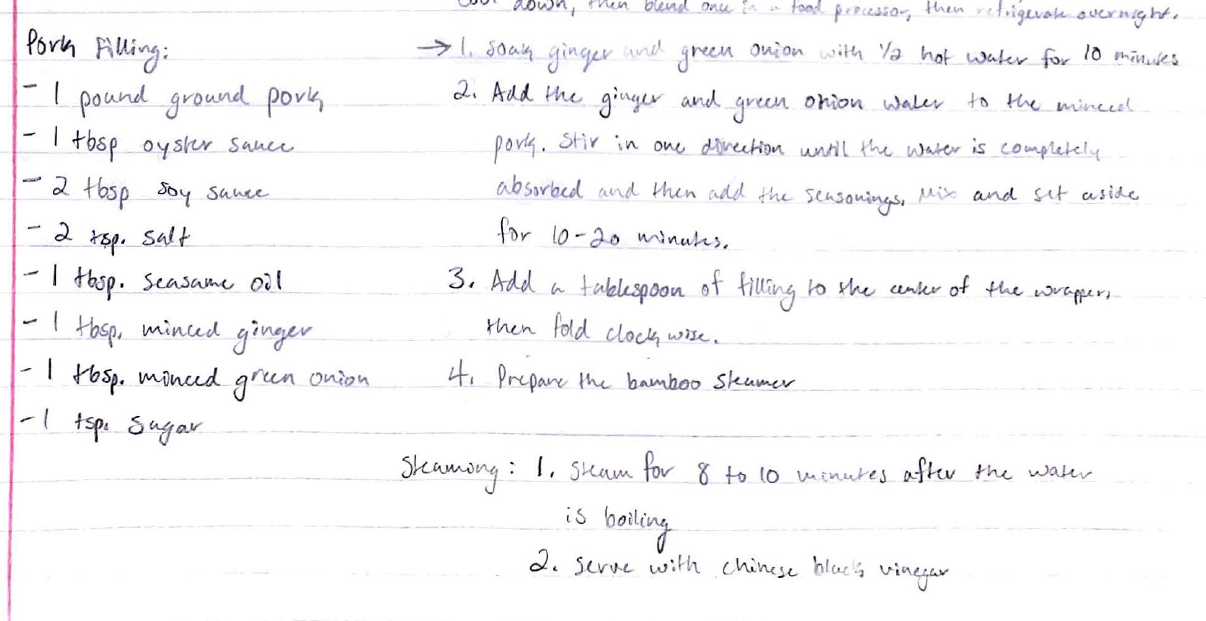 cool down, then blend once in a food processor, then refrigerate overnight.
Pork Filling:
- 1 pound ground pork
- 1 tbsp oyster sauce
- 2 tbsp soy sauce
- 2 tsp. salt
- 1 tbsp. seasame oil
- 1 tbsp. minced ginger
- 1 tbsp. minced green onion
- 1 tsp. sugar
→ 1. Soak ginger and green onion with 1/2 hot water for 10 minutes
2. Add the ginger and green onion water to the minced
pork. Stir in one direction until the water is completely
absorbed and then add the seasonings. Mix and set aside
for 10-20 minutes.
3. Add a tablespoon of filling to the center of the wrapper,
then fold clockwise.
4. Prepare the bamboo steamer
Steaming: 1. Steam for 8 to 10 minutes after the water
is boiling
2. serve with chinese black vinegar